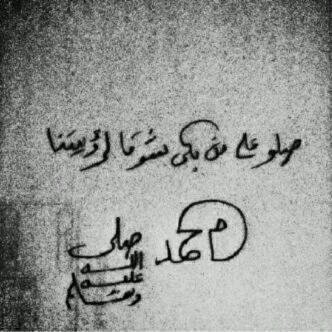 صلو على من بكى شوقا لرؤيتنا
محمد
صلى
الله
عليه
وسلم